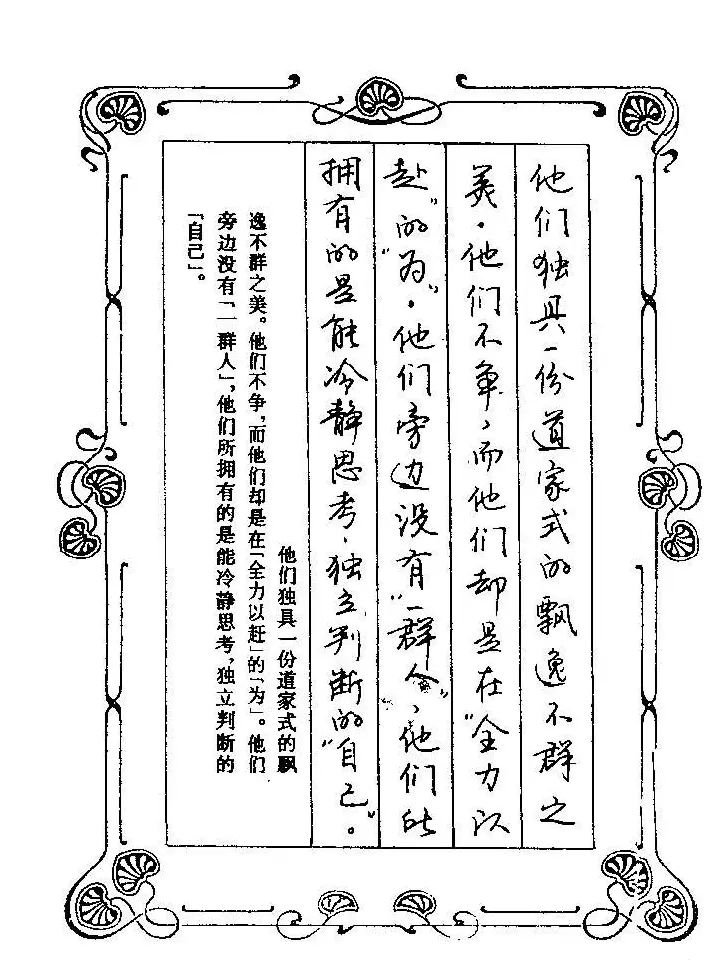 他们独具一份道家式的飘逸不群之
美。他们不争，而他们却是在“全力以
赴”的“为”。他们旁边没有“一群人”，他们所
拥有的是能冷静思考，独立判断的“自己”。
他们独具一份道家式的飘
逸不群之美。他们不争，而他们却是在「全力以赴」的「为」。他们
旁边没有「一群人」，他们所拥有的是能冷静思考，独立判断的
「自己」。